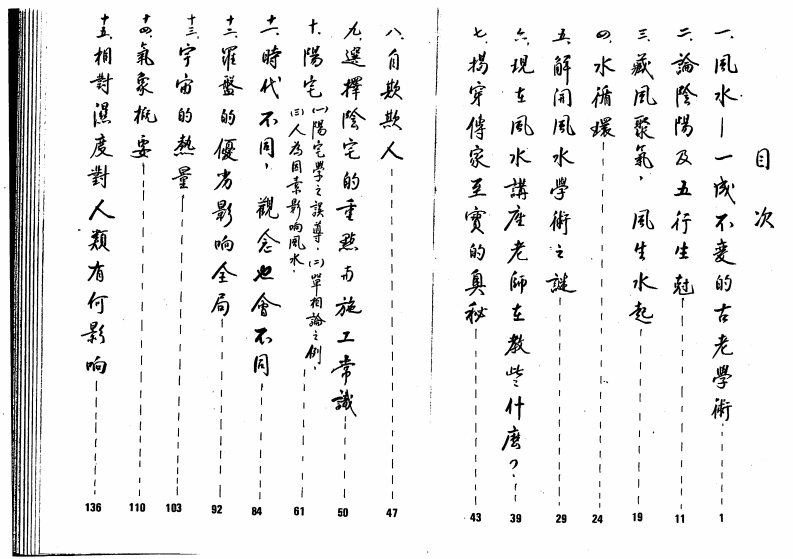 目次
一、風水—一成不變的古老學術 1
二、論陰陽及五行生尅 11
三、藏風聚氣，風生水起 19
四、水循環 24
五、解開風水學術之謎 29
六、現在風水講座老師在教些什麼？ 39
七、揭穿傳家至寶的奧秘 43
八、自欺欺人 47
九、選擇陰宅的重點与施工常識 50
十、陽宅 (一)陽宅學之誤導，(二)單相論之例， 61
(三)人為因素影响風水，
十一、時代不同，觀念也會不同， 84
十二、羅盤的優劣影响全局 92
十三、宇宙的熱量 103
十四、氣象概要 110
十五、相對濕度對人類有何影响 136